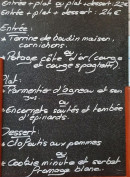 Entrée + plat ou plat + dessert : 22€
Entrée + plat + dessert : 26€
Entrée
Terrine de boudin maison
cornichons.
Potage côte d'or (carotte
et courge spaghetti).
Plat :
Parmentier d'agneau et son
jus
ou
Encornets sautés et tombée
d'épinards.
Dessert :
Clafoutis aux pommes
ou
Cookie, minute et sorbet
fromage blanc.